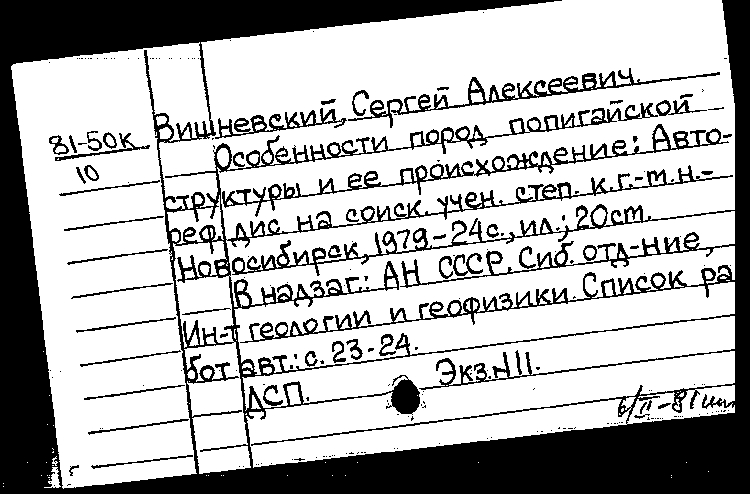 81-50к
10
Вишневский, Сергей Алексеевич.
Особенности пород попигайской
структуры и ее происхождение: Авто-
реф. дис. на соиск. учен. степ. к.г.-м.н.-
Новосибирск, 1979-24с., ил.; 20см.
В надзаг.: АН СССР. Сиб. отд-ние,
Ин-т геологии и геофизики. Список ра
бот авт.: с. 23-24.
ДСП. Экз.N11.
6/II-81